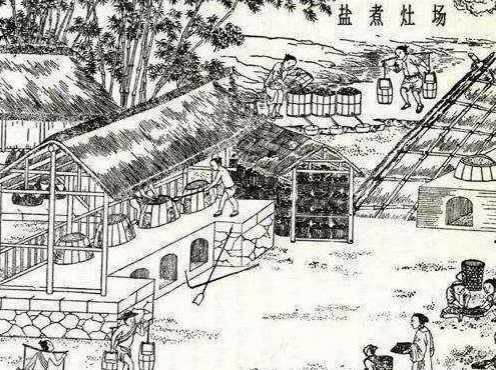 场灶煮盐